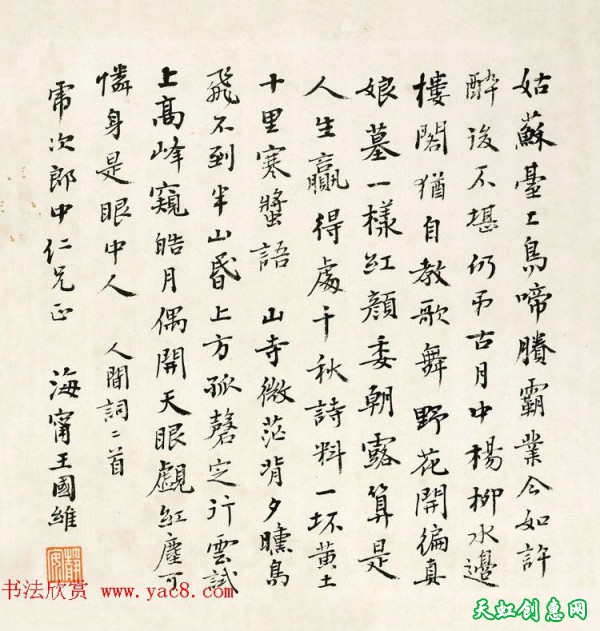 姑蘇臺上烏啼賸霸業今如許
醉後不堪仍弔古月中楊柳水邊
樓閣猶自教歌舞 野花開徧真
娘墓一樣紅顏委朝露算是
人生贏得處千秋詩料一坏黃土
十里寒螿語 山寺微茫背夕曛鳥
飛不到半山昏上方孤磬定行雲試
上高峰窺皓月偶開天眼覷紅塵可
憐身是眼中人 人間詞二首
乕次郎中仁兄正 海甯王國維
靜安
书法欣赏 www.yac8.com
天虹创意网